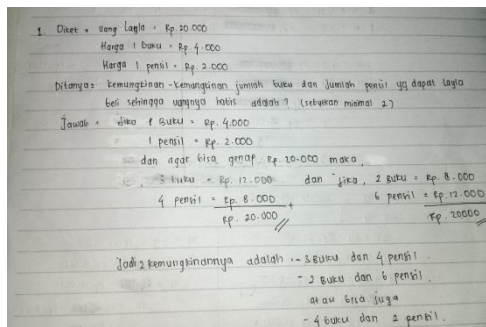 1 Diket = Uang Layla = Rp. 20.000
Harga 1 buku = Rp. 4.000
Harga 1 pensil = Rp. 2.000
Ditanya = kemungkinan-kemungkinan jumlah buku dan jumlah pensil yg dapat Layla
beli sehingga uangnya habis adalah? (sebutkan minimal 2)
Jawab = Jika 1 Buku = Rp. 4.000
1 pensil = Rp. 2.000
dan agar bisa genap Rp. 20.000 maka,
3 buku = Rp. 12.000 dan jika, 2 Buku = Rp. 8.000
4 pensil = Rp. 8.000 + 6 pensil = Rp. 12.000
Rp. 20.000 Rp. 20000
Jadi 2 kemungkinannya adalah :- 3 Buku dan 4 pensil.
- 2 Buku dan 6 pensil.
atau bisa juga
- 4 buku dan 2 pensil.